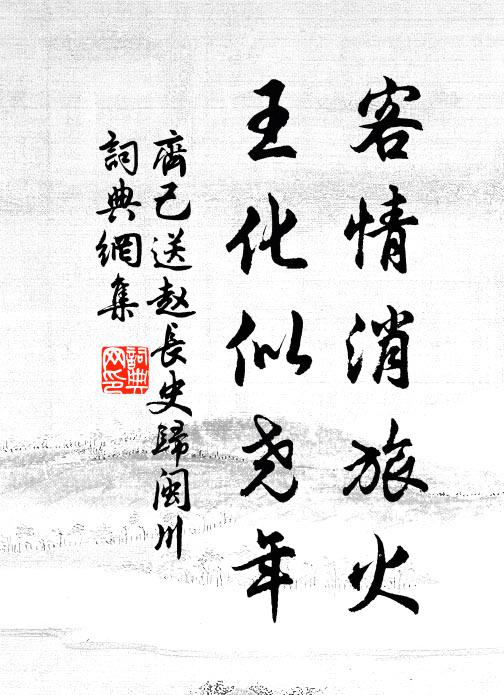 客情消旅火
王化似尧年
齊己送赵長史歸閩川
詞典網集
詞典网印